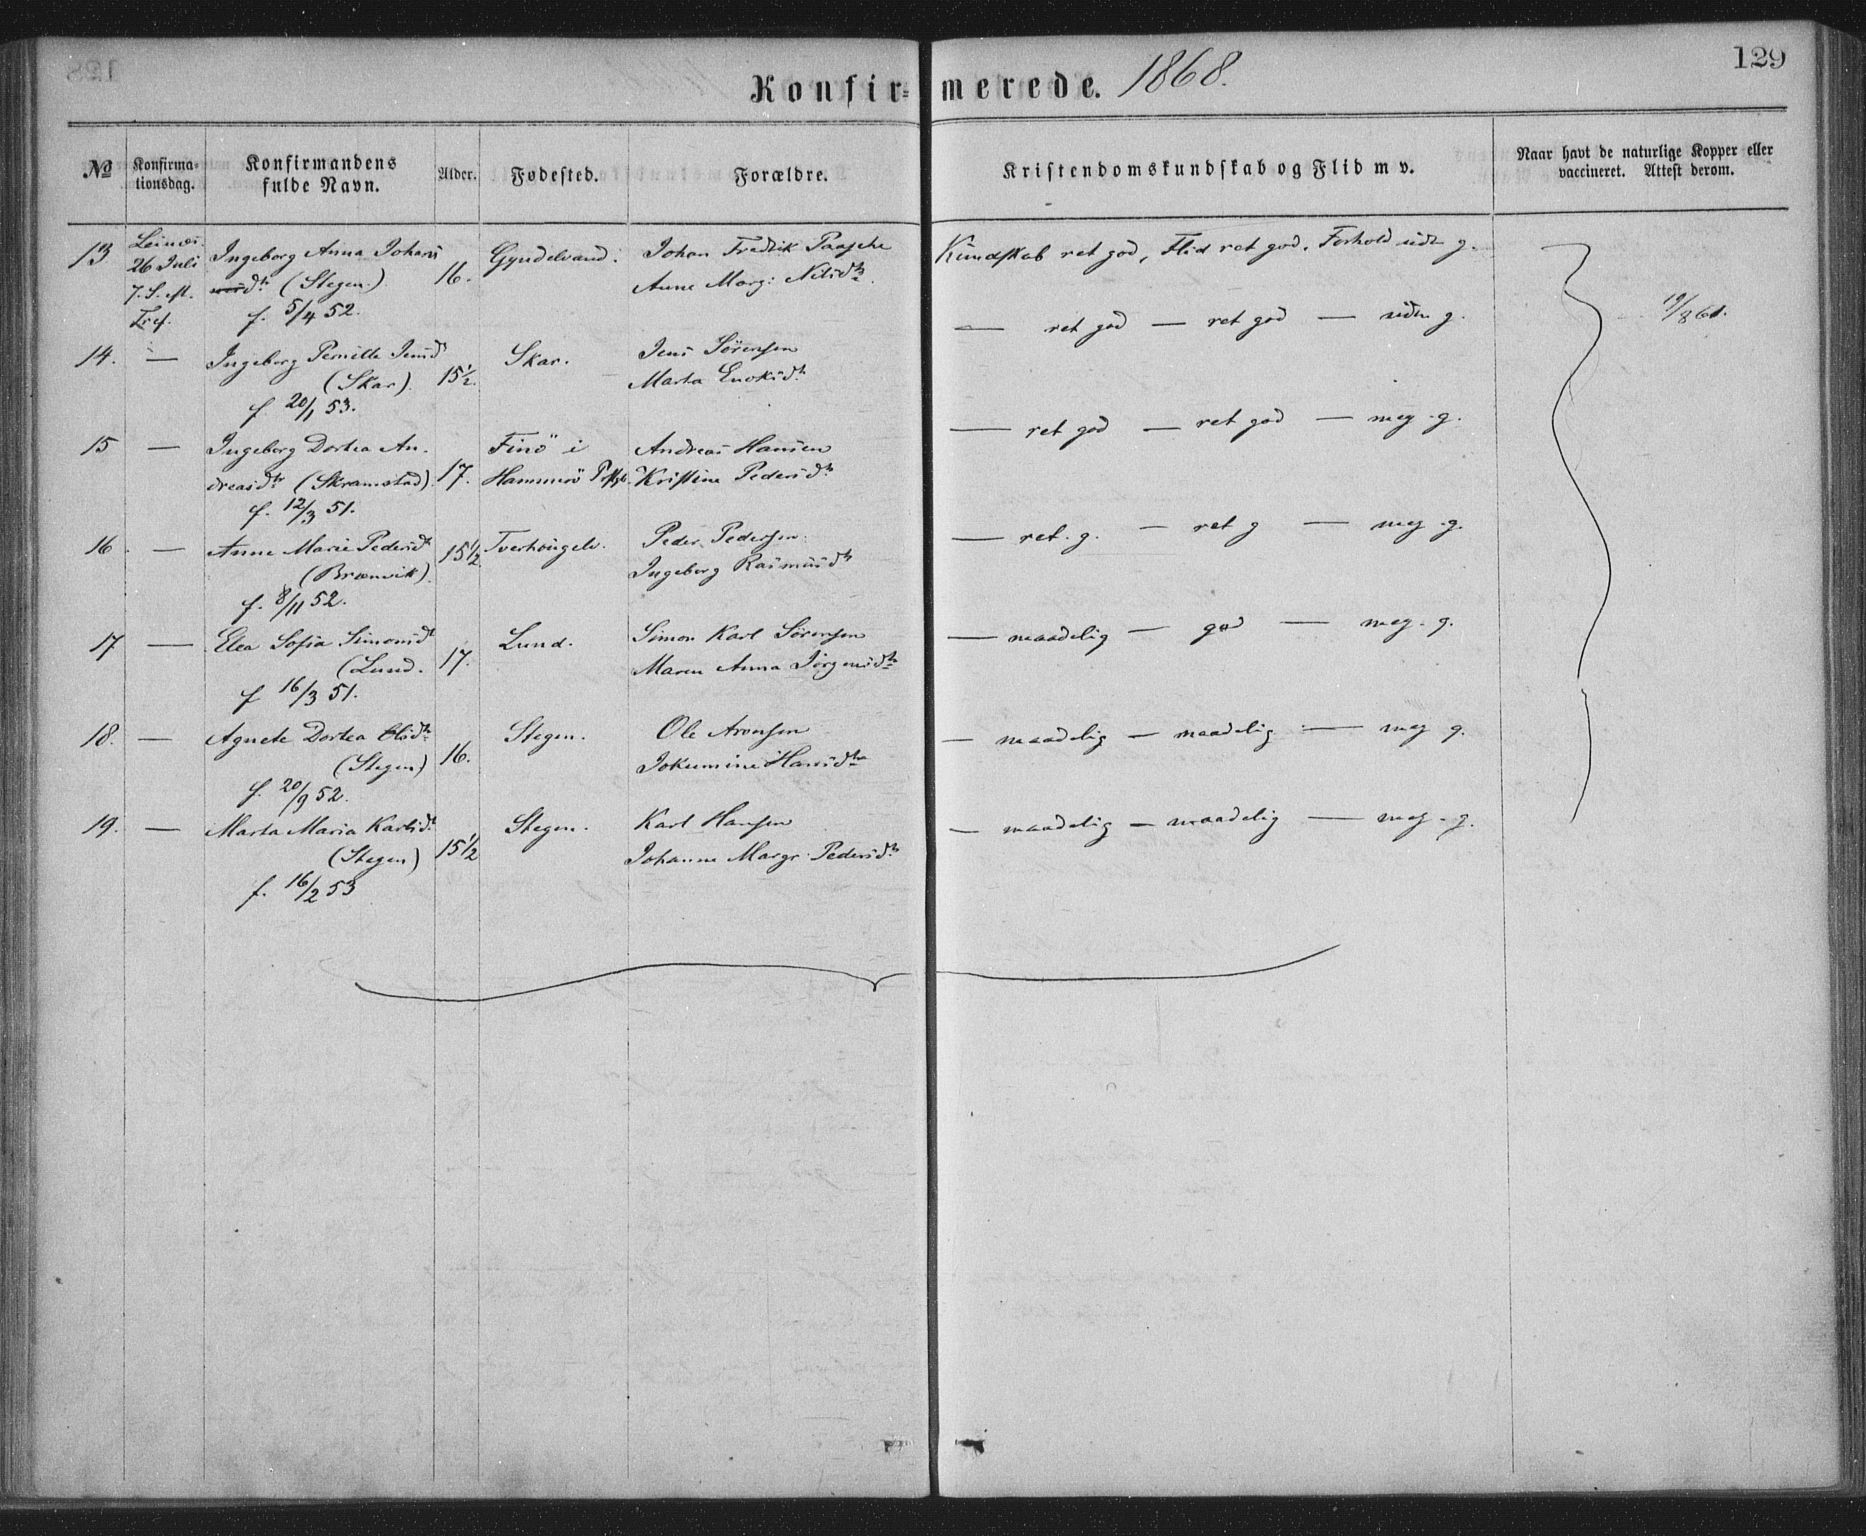 129
Konfirmerede. 1868.
No
Konfirma-
tionsdag.
Konfirmandens
fulde Navn.
Alder.
Fødested.
Forældre.
Kristendomskundskab og Flid m v.
Naar havt de naturlige Kopper eller
vaccineret. Attest derom.
13
26 Juli
7. S. eft.
Tref.
Ingeborg Anna Johans
dtr (Stegen)
f. 5/4 52.
16.
Gyndelvand.
Johan Fredrik Paasche
Anne Marg: Nilsdtr.
Kundskab ret god, Flid ret god. Forhold udm g.
14. —
Ingeborg Pernille Jensd
(Skar).
f. 20/1 53.
15½.
Skar.
Jens Sørensen
Marta Enoksdtr
— ret god — ret god — udm g.
19/8 61.
15 —
Ingeborg Dortea An-
dreasdtr (Skramstad).
f. 12/3 51.
17.
Finö i
Hammerö Prstgd.
Andreas Hansen
Kristine Pedersdtr
— ret god — ret god — meg. g.
16 —
Anne Marie Pedersdt
(Brænvik)
f. 8/11 52.
15½
Tverhougelv.
Peder Pedersen.
Ingeborg Rasmusdtr
— ret. g. — ret g — meg. g.
17 —
Elea Sofia Simonsdt
(Lund.
f 16/3 51.
17.
Lund.
Simon Karl Sørensen
Maren Anna Jörgensdtr
— maadelig — god — meg. g.
18. —
Agnete Dortea Olsdtr
(Stegen)
f. 20/9 52.
16.
Stegen.
Ole Aronsen
Jokumine Hansdtr
— maadelig — maadelig — meg g.
19. —
Marta Maria Karlsdt
(Stegen)
f. 16/2 53
15½
Stegen.
Karl Hansen
Johanne Margr. Pedersdtr
— maadelig — maadelig — meg. g.